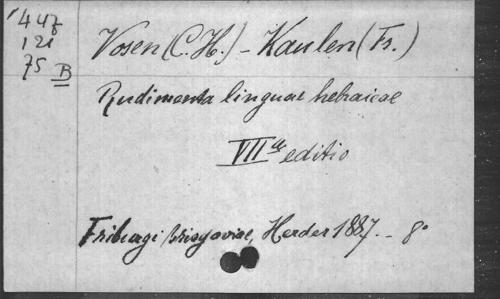 447
121
75 B
Vosen (C. H.) - Kaulen (Fr.)
Rudimenta linguae hebraicae
VII editio
Friburgi Brisgoviae, Herder 1887. - 8°